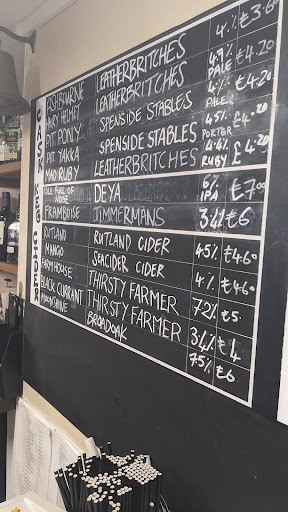 ASHBOURNE LEATHERBRITCHES 4% £3.60
HAIRY HELMET LEATHERBRITCHES 4.7% PALE £4.20
PIT PONY SPENSIDE STABLES 4% PALE £4.20
PIT YAKKA SPENSIDE STABLES 4.5% PORTER £4.20
MAD RUBY LEATHERBRITCHES 4.4% RUBY £4.20
ISLE FULL OF NOISE DEYA 6% IPA £7.00
FRAMBOISE JIMMERMANS 3.4% £6
RUTLAND RUTLAND CIDER 4.5% £4.60
MANGO SEACIDER CIDER 4% £4.60
FARMHOUSE THIRSTY FARMER 7.2% £5.
BLACK CURRANT THIRSTY FARMER 3.4% £4
MOONSHINE BROADOAK 7.5% £6